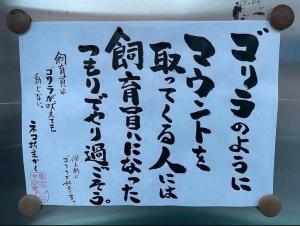 ゴリラのように
マウントを
取ってくる人には
飼育員になった
つもりでやり過ごそう。
飼育員は
ゴリラが吠えても
動じない。
ネコ坊主かく
個人的に
ゴリラが好きです。